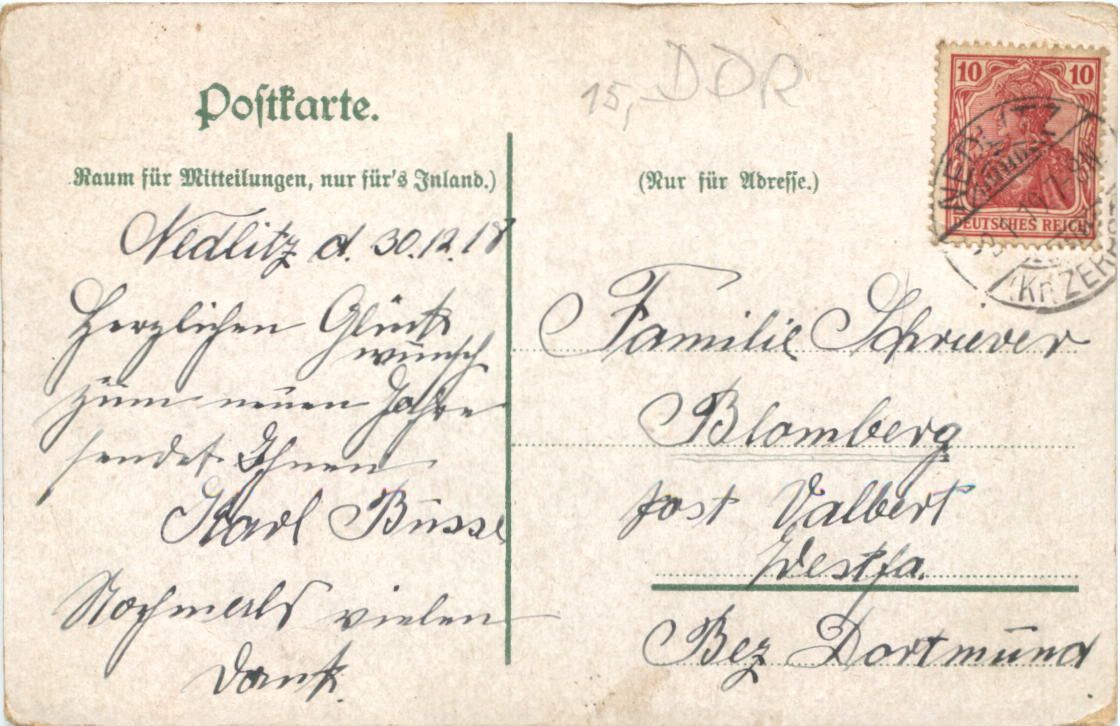 15,- DDR
Postkarte.
Raum für Mitteilungen, nur für's Inland.)
Nedlitz d. 30.12.18
Herzlichen Glück
wünsch
züm neuen Jahre
sendet Ihnen
Karl Büsse
Nochmals vielen
Dank.
(Nur für Adresse.)
10 10
DEUTSCHES REICH
NEDLITZ
(Kr. ZERB
Familie Schriever
Blomberg
post Valbert
Westfa.
Bez Dortmünd